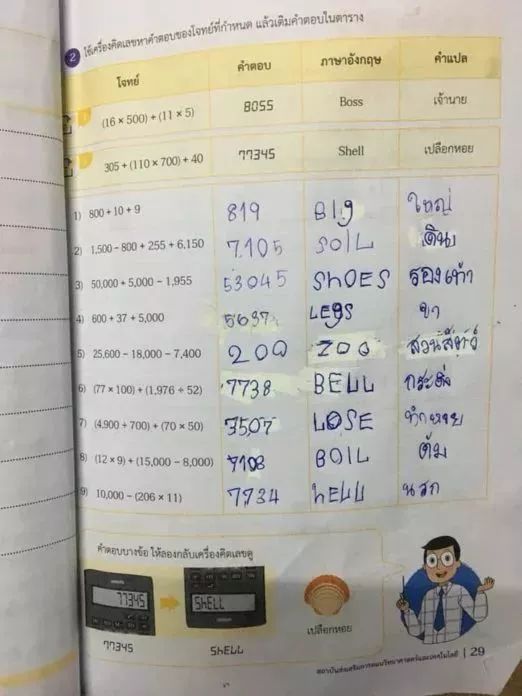 2 ใช้เครื่องคิดเลขหาคำตอบของโจทย์ที่กำหนด แล้วเติมคำตอบในตาราง
โจทย์ คำตอบ ภาษาอังกฤษ คำแปล
(16 × 500) + (11 × 5) 8055 Boss เจ้านาย
305 + (110 × 700) + 40 77345 Shell เปลือกหอย
1) 800 + 10 + 9 819 BIg ใหญ่
2) 1,500 - 800 + 255 + 6,150 7105 SOIL ดิน
3) 50,000 + 5,000 - 1,955 53045 ShOES รองเท้า
4) 600 + 37 + 5,000 5637 LEgS ขา
5) 25,600 - 18,000 - 7,400 200 ZOO สวนสัตว์
6) (77 × 100) + (1,976 ÷ 52) 7738 BELL กระดิ่ง
7) (4,900 + 700) + (70 × 50) 3507 LOSE ทำหาย
8) (12 × 9) + (15,000 - 8,000) 7108 BOIL ต้ม
9) 10,000 - (206 × 11) 7734 hELL นรก
คำตอบบางข้อ ให้ลองกลับเครื่องคิดเลขดู
77345 ShELL
เปลือกหอย
77345 ShELL
สถาบันส่งเสริมการสอนวิทยาศาสตร์และเทคโนโลยี | 29